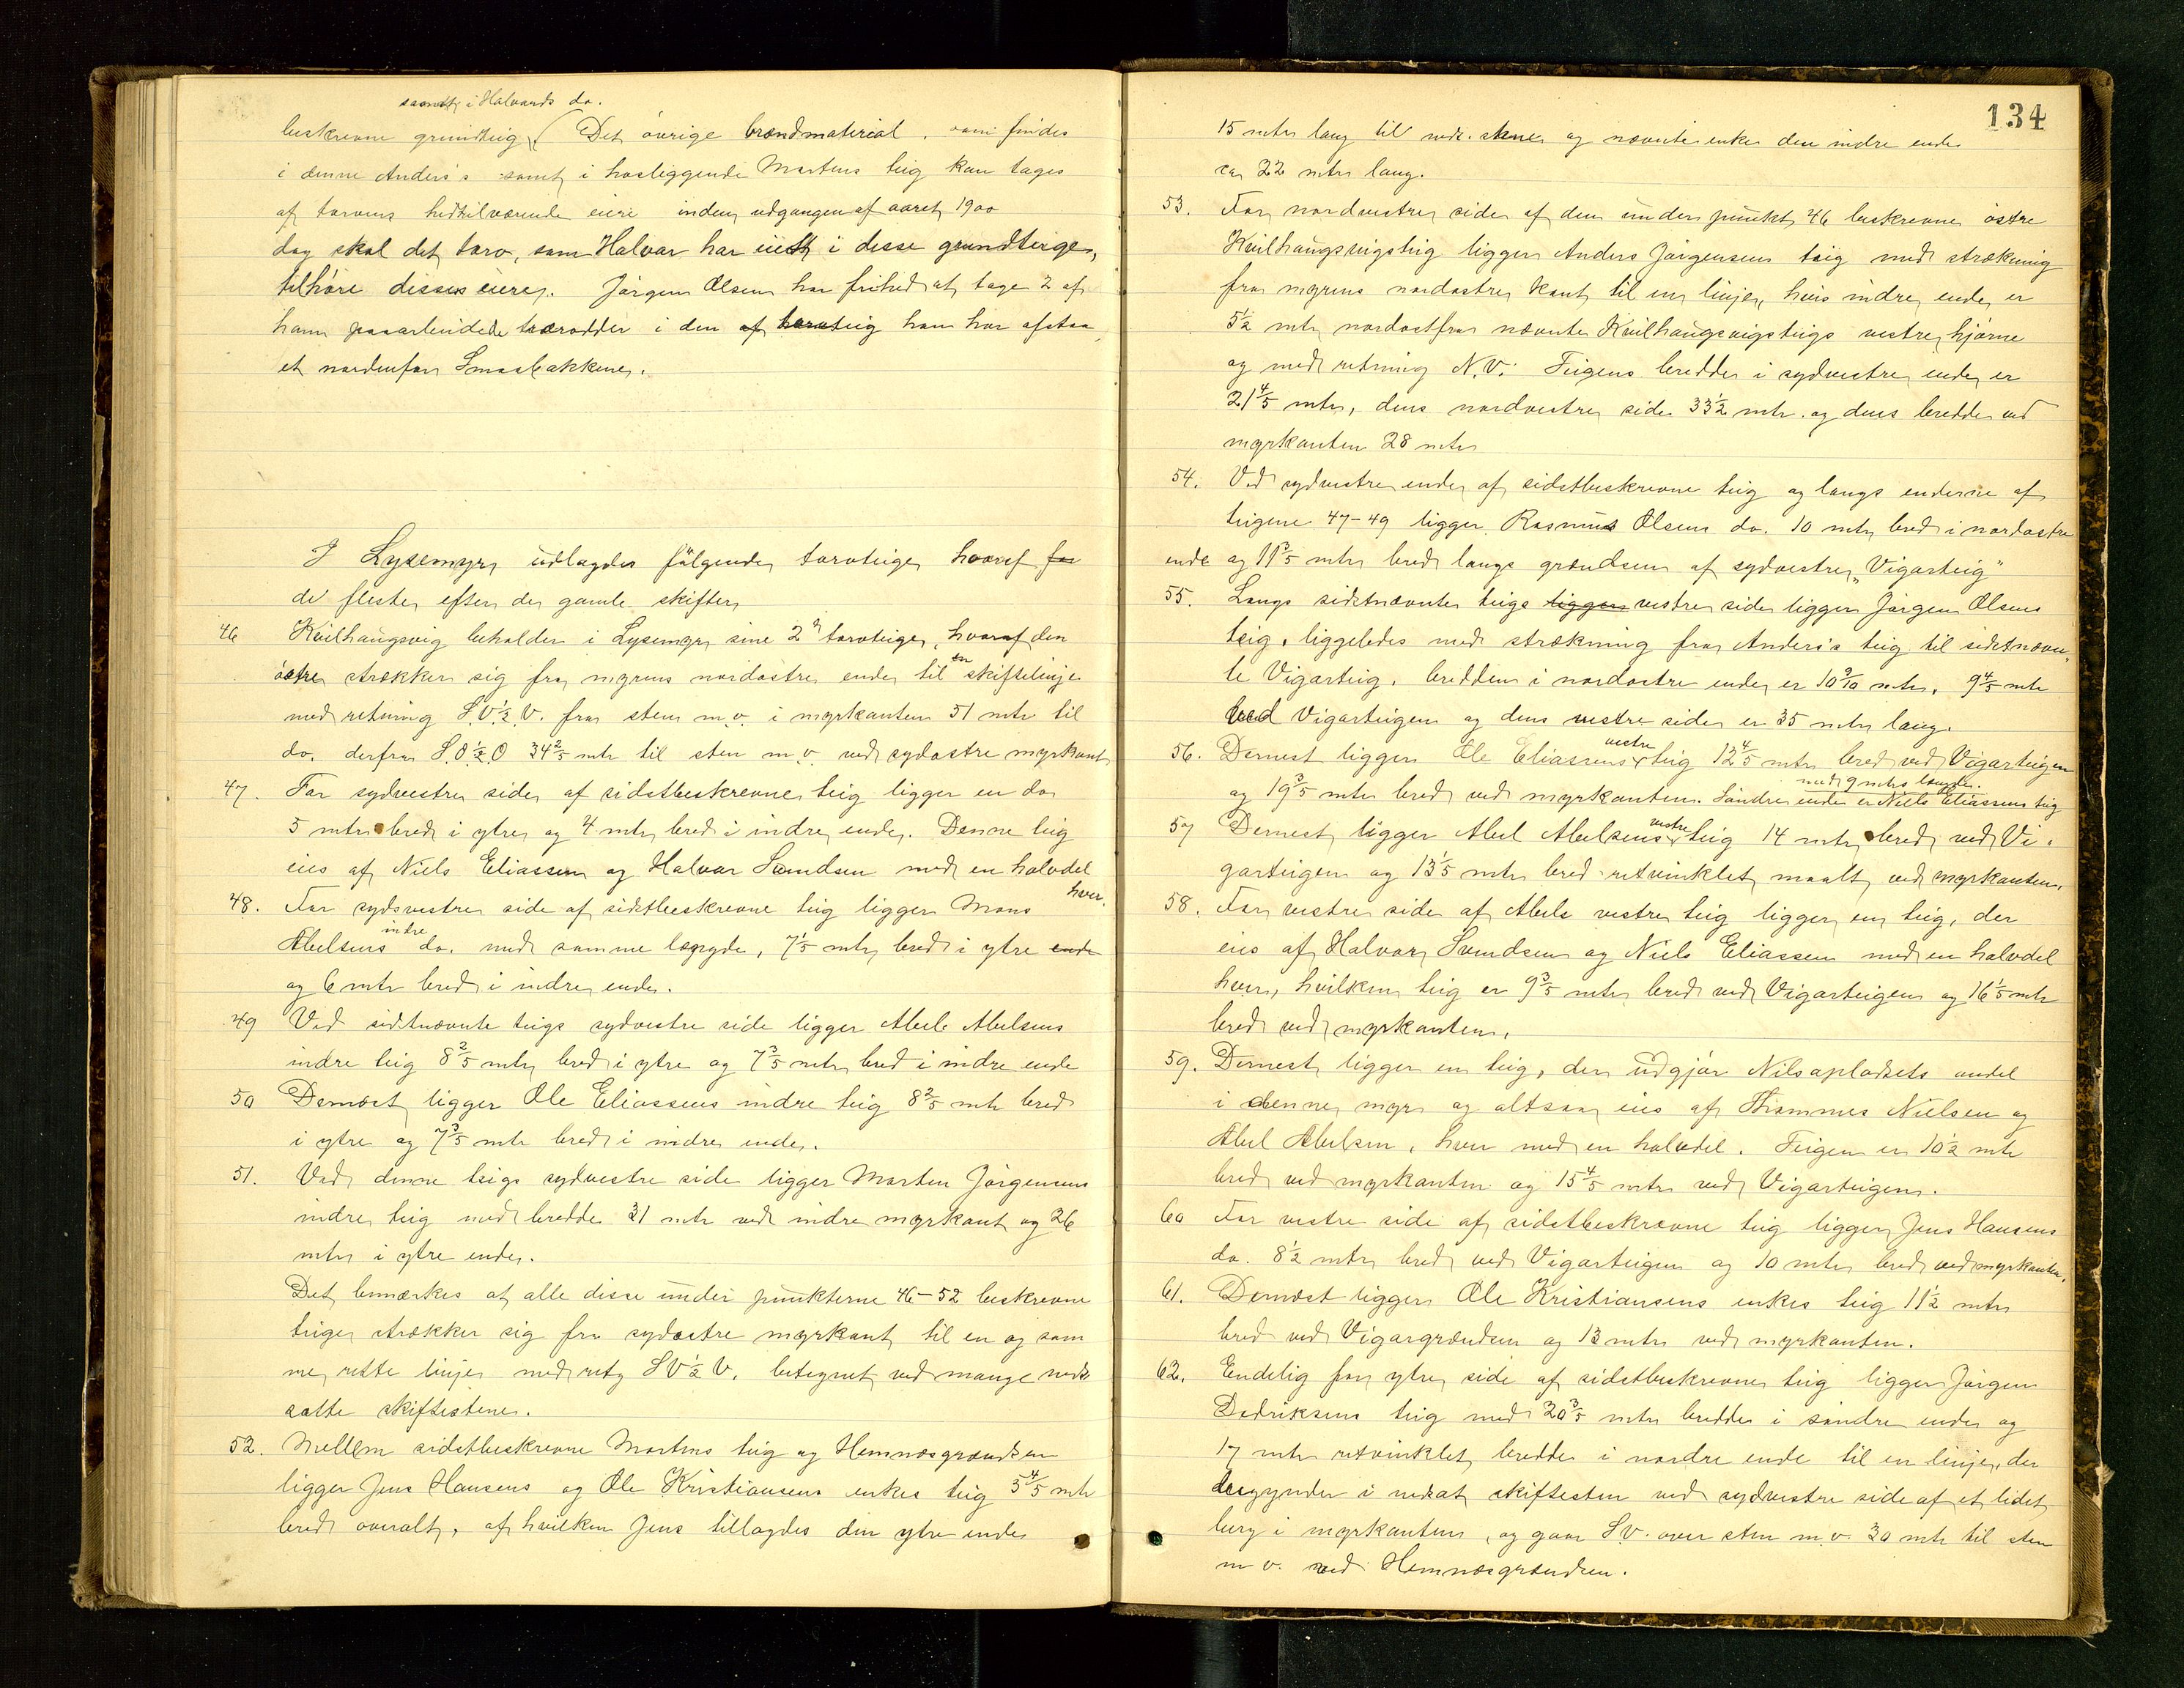 samt i Halvards do.
beskrevne grundteig. Det øvrige brændmaterial, som findes
i denne Anders's samt i hosliggende Martens teig kan tages
af torvens hidtilværende eiere inden udgangen af aaret 1900
dog skal det torv, som Halvar har i disse grundteige,
tilhøre disses eiere. Jørgen Olsen har frihed at tage 2 af
ham paaarbeidede i den af teig han har afstaa
et nordenfor Smaabakkene.
I Lysemyr udlagdes følgende torvteige hvoraf for
de fleste efter de gamle skifter
46 Kvilhaugsvig beholder i Lysemyr sine 2de torvteige, hvoraf den
østre strækker sig fra myrens nordøstre ende til en skiftelinje
med retning S.V.½.V. fra sten m.v. i myrkanten 51 mtr til
do. derfra S.O.½.O 34 2/5 mtr til sten m.v. ved sydøstre myrkant
47. For sydvestre side af sidstbeskrevne teig ligger en do
5 mtr bred i ytre og 4 mtr bred i indre ende. Denne teig
eies af Niels Eliassen og Halvar Svendsen med en halvdel
hver.
48. For sydvestre side af sidstbeskrevne teig ligger Mons
Abelsens indre do. med samme længde, 7 1/5 mtr bred i ytre ende
og 6 mtr bred i indre ende.
49 Ved sidstnævnte teigs sydvestre side ligger Abels Abelsens
indre teig 8 2/5 mtr bred i ytre og 7 3/5 mtr bred i indre ende
50 Dernæst ligger Ole Eliassens indre teig 8 2/5 mtr bred
i ytre og 7 3/5 mtr bred i indre ende.
51. Ved denne teigs sydvestre side ligger Marten Jørgensens
indre teig med bredde 31 mtr ved indre myrkant og 26
mtr i ytre ende.
Det bemærkes at alle disse under punkterne 46-52 beskrevne
teige strækker sig fra sydøstre myrkant til en og sam
me rette linje med retg SV½V. betegnet ved mange ned
satte skiftestene.
52. Mellem sidstbeskrevne Martens teig og Hemnæsgrændsen
ligger Jens Hansens og Ole Kristiansens enkes teig 5 4/5 mtr
bred overalt, af hvilken Jens tillagdes den ytre ende
134
15 mtr lang til neds. stene og nævnte enke den indre ende
ca 22 mtr lang.
53. For nordvestre side af den under punkt 46 beskrevne østre
Kvilhaugsvigsteig ligger Anders Jørgensens teig med strækning
fra myrens nordøstre kant til en linje, hvis indre ende er
5½ mtr nordostfra nævnte Kvilhaugsvigsteigs vestre hjørne
og med retning N.V. Teigens bredde i sydvestre ende er
21 4/5 mtr, dens nordvestre side 33½ mtr. og dens bredde ved
myrkanten 28 mtr
54. Ved sydvestre ende af sidstbeskrevne teig og langs enderne af
teigene 47-49 ligger Rasmus Olsens do. 10 mtr bred i nordøstre
ende og 11 3/5 mtr bred langs grændsen af sydvestre "Vigarteig"
55. Langs sidstnævnte teigs ligger vestre side ligger Jørgen Olsens
teig, liggeledes med strækning fra Anders's teig til sidstnævn-
te Vigarteig. bredden i nordøstre ende er 10 9/10 mtr, 9 4/5 mtr
bred Vigarteigen og dens vestre side er 35 mtr lang.
56. Dernest ligger Ole Eliassens vestre teig 12 4/5 mtr bred ved Vigarteigen
og 19 3/5 mtr bred ved myrkanten. I søndre ende er Niels Eliassens teig
med 9 mtrs længde.
57 Dernest ligger Abel Abelsens vestre teig 14 mtr bred ved Vi-
garteigen og 13 1/5 mtr bred retvinklet maalt ved myrkanten.
58. For vestre side af Abels vestre teig ligger en teig, der
eies af Halvor Svendsen og Niels Eliassen med en halvdel
hver, hvilken teig er 9 3/5 mtr bred ved Vigarteigen og 16 1/5 mtr
bred ved myrkanten.
59. Dernest ligger en teig, der udgjør Nilsapladsets andel
i denne myr og altsaa eies af Nielsen og
Abel Abelsen, hver med en halvdel. Teigen er 10½ mtr
bred ved myrkanten og 15 4/5 mtr ved Vigarteigen.
60 For vestre side af sidstbeskrevne teig ligger Jens Hansens
do. 8½ mtr bred ved Vigarteigen og 10 mtr bred ved myrkanten.
61. Dernæst ligger Ole Kristiansens enkes teig 11½ mtr
bred ved Vigargrændsen og 13 mtr ved myrkanten.
62. Endelig for ytre side af sidstbeskrevne teig ligger Jørgen
Dedriksens teig med 20 3/5 mtr bredde i søndre ende og
17 mtr retvinklet bredde i nordre ende til en linje, der
begynder i nedsat skiftesten ved sydvestre side af et lidet
berg i myrkanten, og gaar S.V. over sten m.v. 30 mtr til sten
m v. ved Hemnæsgrændsen.